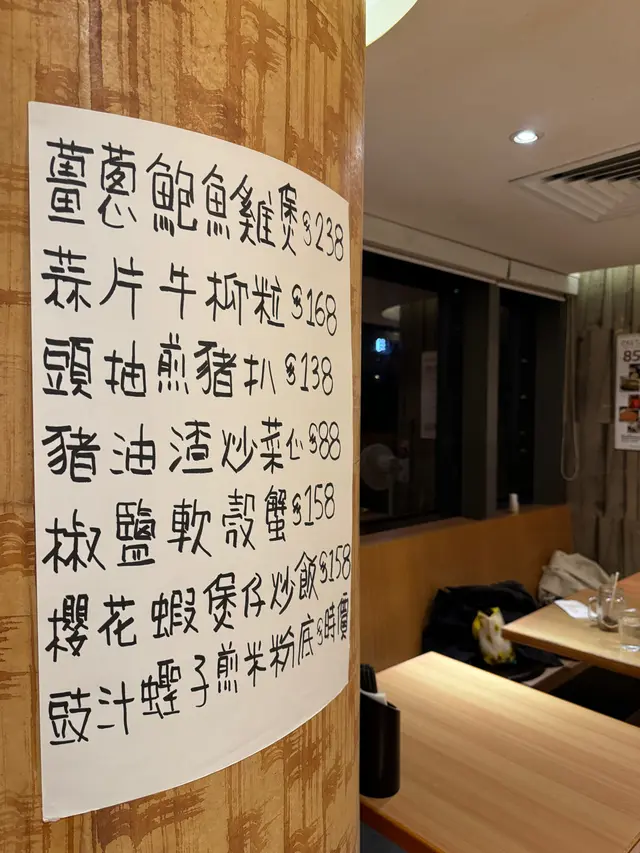 薑蔥鮑魚雞煲$238
蒜片牛柳粒$168
頭抽煎豬扒$138
豬油渣炒菜心$88
椒鹽軟殼蟹$158
櫻花蝦煲仔炒飯$158
豉汁蟶子煎米粉底$時價
85